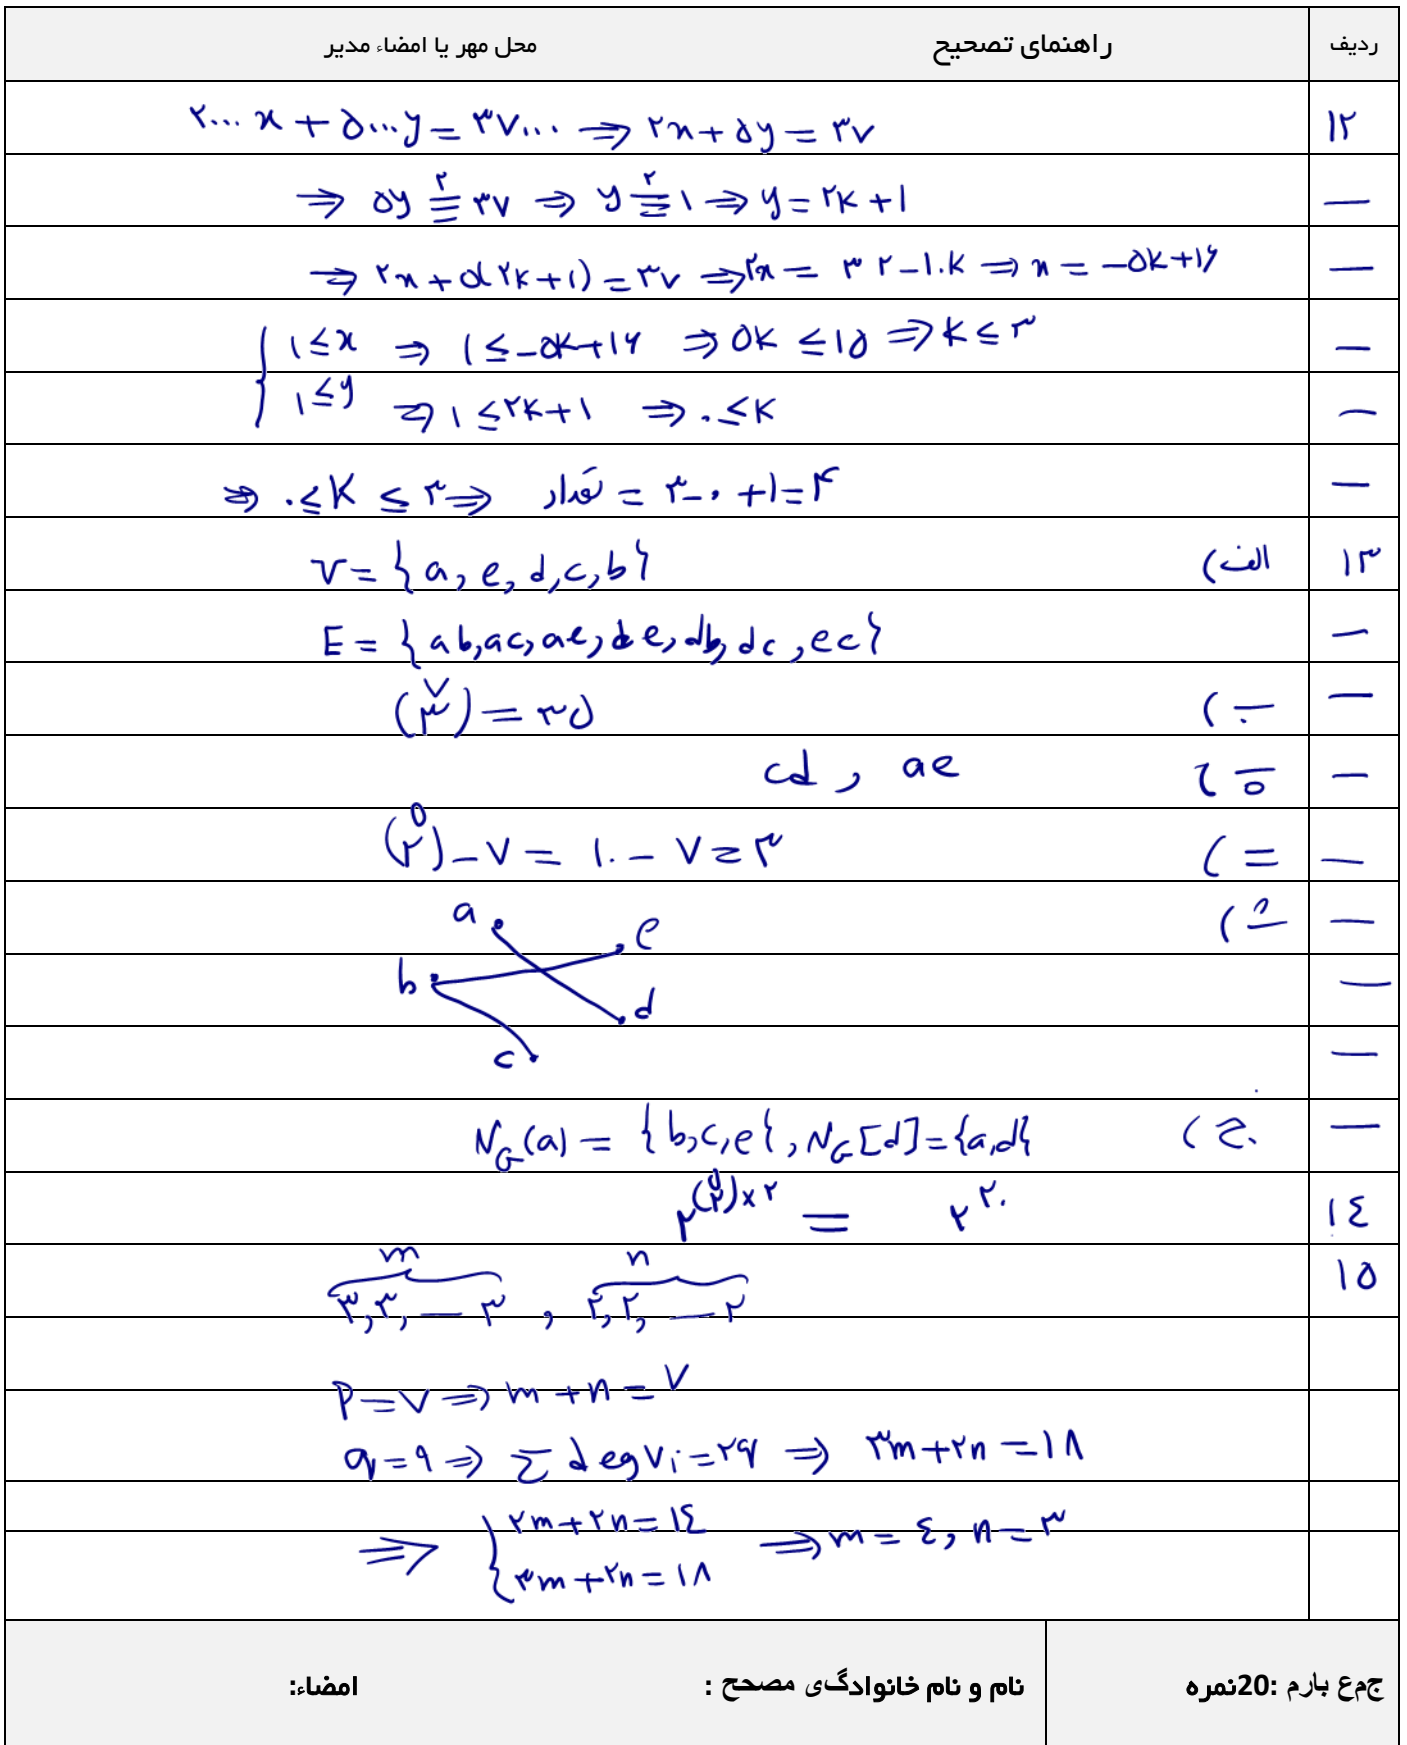 ردیف راهنمای تصحیح محل مهر یا امضاء مدیر
۱۲ ۲۰۰۰x + ۵۰۰۰y = ۳۷۰۰۰ ⇒ ۲x + ۵y = ۳۷
— ⇒ ۵y ≡^۲ ۳۷ ⇒ y ≡^۲ ۱ ⇒ y = ۲k + ۱
— ⇒ ۲x + ۵(۲k + ۱) = ۳۷ ⇒ ۲x = ۳۲ - ۱۰k ⇒ x = -۵k + ۱۶
— { ۱ ≤ x ⇒ ۱ ≤ -۵k + ۱۶ ⇒ ۵k ≤ ۱۵ ⇒ k ≤ ۳
— ۱ ≤ y ⇒ ۱ ≤ ۲k + ۱ ⇒ ۰ ≤ k
— ⇒ ۰ ≤ k ≤ ۳ ⇒ تعداد = ۳ - ۰ + ۱ = ۴
۱۳ الف) V = {a, e, d, c, b}
— E = {ab, ac, ae, de, db, dc, ec}
— ب) (۷ ۳) = ۳۵
— پ) cd , ae
— ت) (۵ ۲) - ۷ = ۱۰ - ۷ = ۳
— ث) a e
— b d
— c
— ج) N_G(a) = {b, c, e} , N_G[d] = {a, d}
۱٤ ۲^((۵ ۲) × ۲) = ۲^۲۰
۱۵ m n
۳, ۳, — ۳ , ۲, ۲, — ۲
P = ۷ ⇒ m + n = ۷
q = ۹ ⇒ Σ deg vᵢ = ۲q ⇒ ۳m + ۲n = ۱۸
⇒ { ۲m + ۲n = ۱٤ ⇒ m = ٤, n = ۳
۳m + ۲n = ۱۸
جمع بارم :20نمره نام و نام خانوادگی مصحح : امضاء: